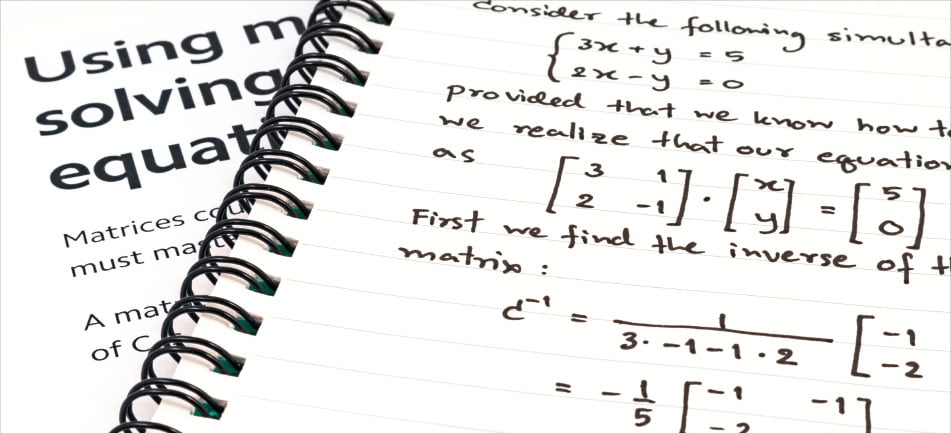 Using m
solving
equat
Matrices cou
must ma
A mat
of C
Consider the following simulta
{ 3x + y = 5
2x - y = 0
provided that we know how t
we realize that our equation
as [3 1; 2 -1] · [x; y] = [5; 0]
First we find the inverse of t
matrix :
C⁻¹ = 1 / (3 · -1 - 1 · 2) [-1
-2
= - 1/5 [-1 -1]
-2